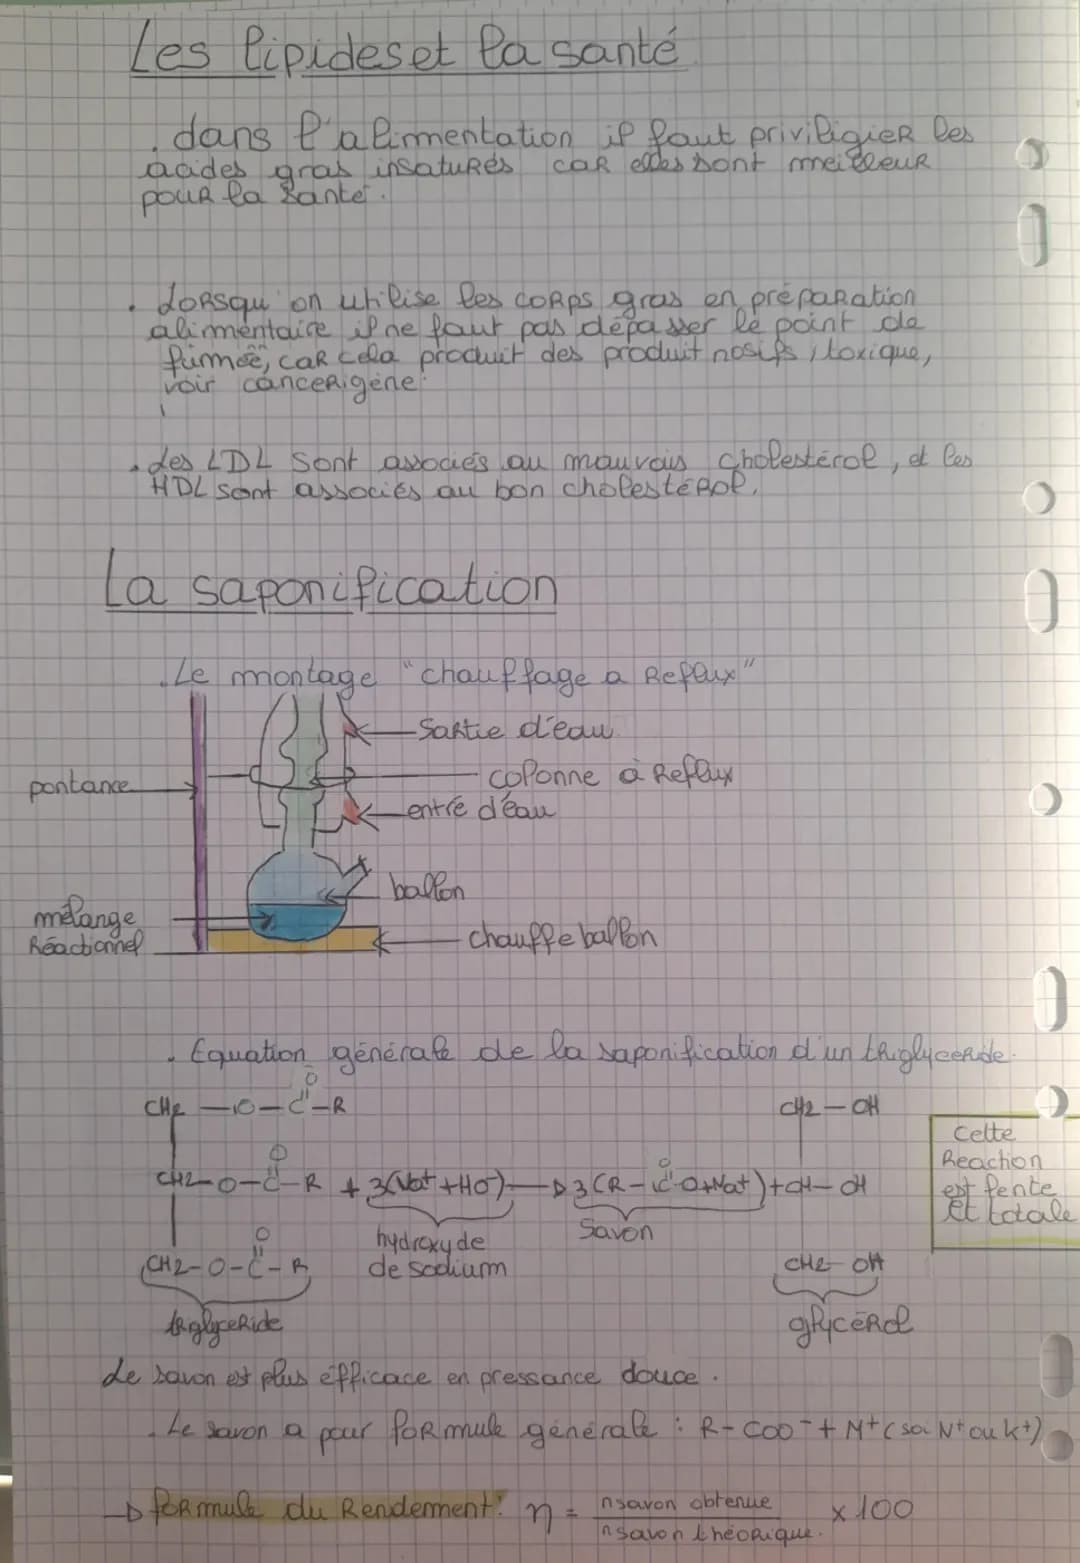 Les lipides et la santé
. dans l'alimentation il faut priviligier les
acides gras insaturés car elles sont meilleur
pour la santé.
. Lorsqu'on utilise les corps gras en préparation
alimentaire il ne faut pas dépasser le point de
fumée, car cela produit des produit nosifs, toxique,
voir cancerigène.
. les LDL sont associés au mauvais cholestérol, et les
HDL sont associés au bon cholestérol.
La saponification
. Le montage "chauffage a Reflux"
Sortie d'eau
pontance
colonne à Reflux
entré d'eau
ballon
mélange
Réactionnel
chauffe ballon
. Equation générale de la saponification d'un triglyceride.
O
CH2 — O — C — R
CH2 — OH
Cette
Reaction
est lente
et totale
O
O
CH2 — O — C — R + 3(Na+ + HO-) → 3(R — C - O + Na+) + CH — OH
hydroxyde
de sodium
Savon
O
CH2 - O - C - R
CH2 OH
triglyceride
glycérol
Le savon est plus efficace en pressance douce.
. Le savon a pour formule générale : R - COO- + M+ (soi N+ ou K+)
→ formule du Rendement: η = nsavon obtenue / nsavon théorique. x 100